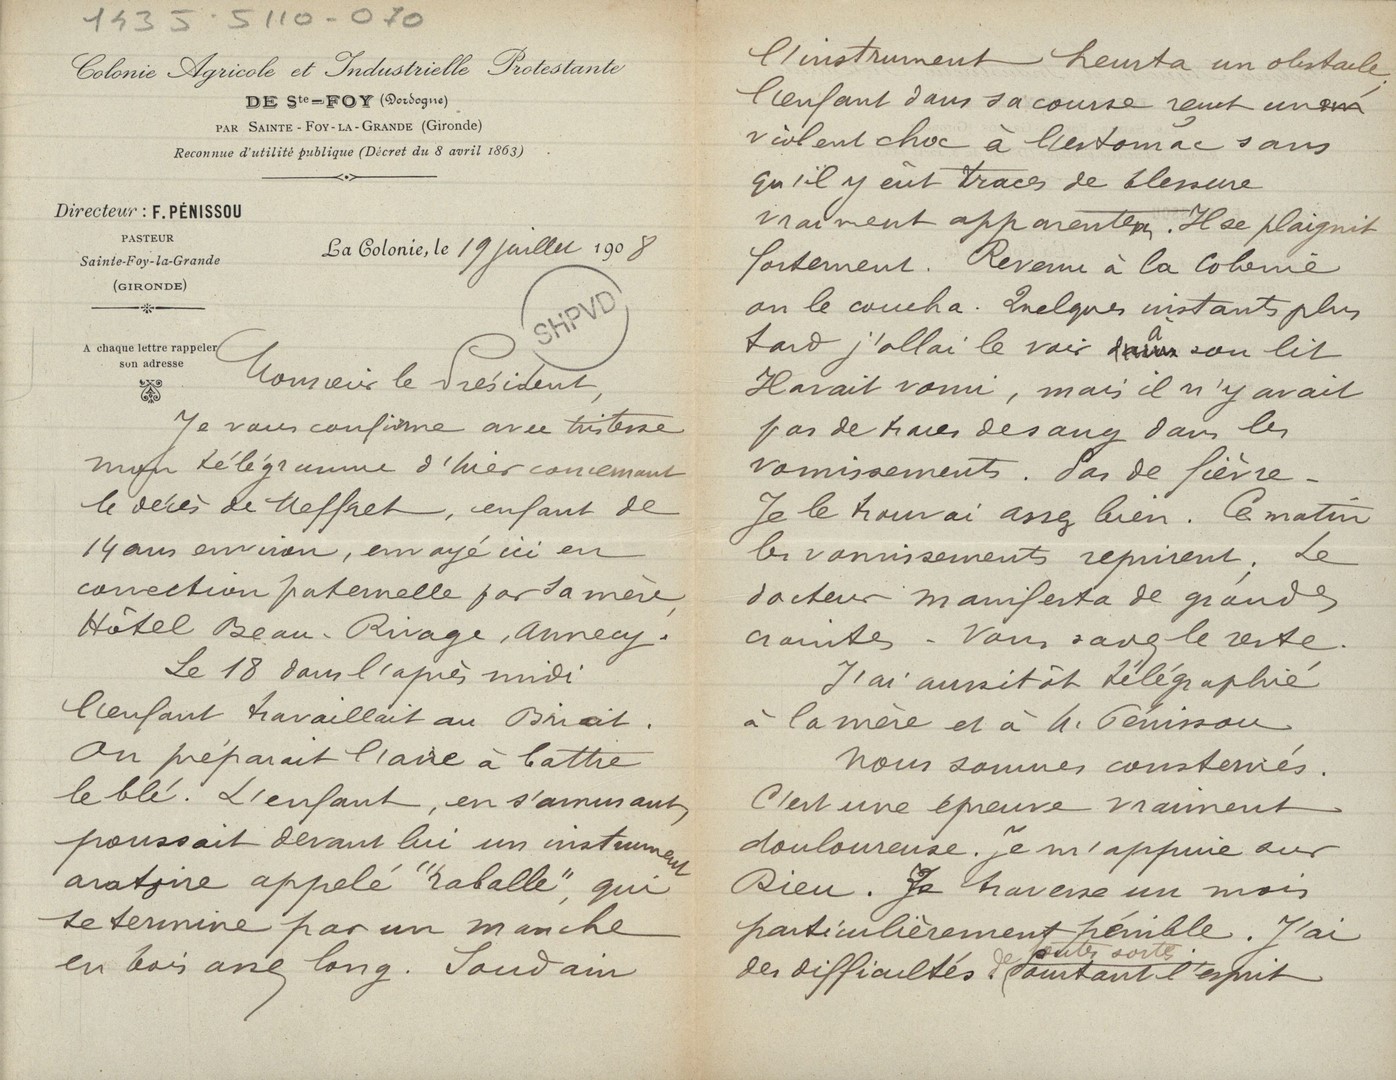 1435.5110-070
Colonie Agricole et Industrielle Protestante
DE Ste=FOY (Dordogne)
PAR SAINTE-FOY-LA-GRANDE (Gironde)
Reconnue d'utilité publique (Décret du 8 avril 1863)
Directeur : F. PÉNISSOU
PASTEUR
Sainte-Foy-la-Grande
(GIRONDE)
La Colonie, le 19 juillet 1908
SHPVD
A chaque lettre rappeler
son adresse
Monsieur le Président,
Je vous confirme avec tristesse
mon télégramme d'hier concernant
le décès de Neffret, enfant de
14 ans environ, envoyé ici en
correction paternelle par sa mère,
Hôtel Beau-Rivage, Annecy.
Le 18 dans l'après midi
l'enfant travaillait au Briat.
On préparait l'aire à battre
le blé. L'enfant, en s'amusant,
poussait devant lui un instrument
aratoire appelé "raballe", qui
se termine par un manche
en bois assez long. Soudain
l'instrument heurta un obstacle,
l'enfant dans sa course reçut un
violent choc à l'estomac sans
qu'il y eût traces de blessure
vraiment apparentes. Il se plaignit
fortement. Revenu à la Colonie
on le coucha. Quelques instants plus
tard j'allai le voir à son lit
Il avait vomi, mais il n'y avait
pas de traces de sang dans les
vomissements. Pas de fièvre -
Je le trouvai assez bien. Ce matin
les vomissements reprirent. Le
docteur manifesta de grandes
craintes - Vous savez le reste.
J'ai aussitôt télégraphié
à la mère et à M. Pénissou
Nous sommes consternés.
C'est une épreuve vraiment
douloureuse. Je m'appuie sur
Dieu. Je traverse un mois
particulièrement pénible. J'ai
des difficultés de toutes sortes
Pourtant l'esprit